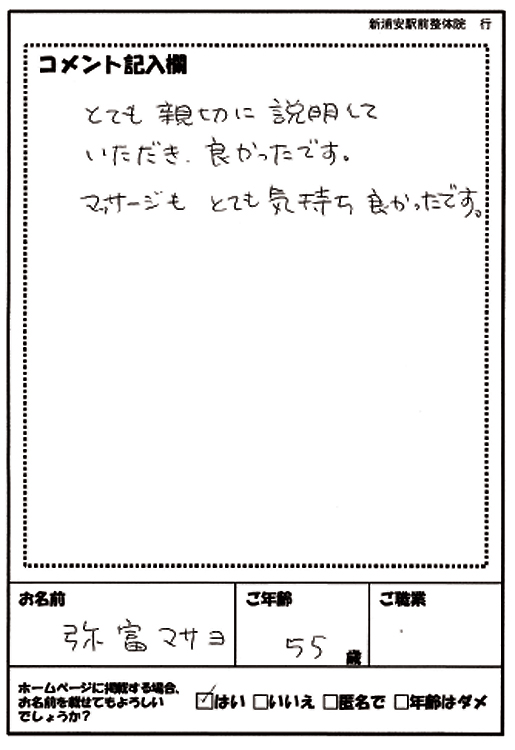 新浦安駅前整体院 行
コメント記入欄
とても 親切に 説明して
いただき、良かったです。
マッサージも とても 気持ち 良かったです。
お名前
ご年齢
ご職業
弥富マサヨ
55歳
ホームページに掲載する場合、
お名前を載せてもよろしい
でしょうか?
☑はい □いいえ □匿名で □年齢はダメ